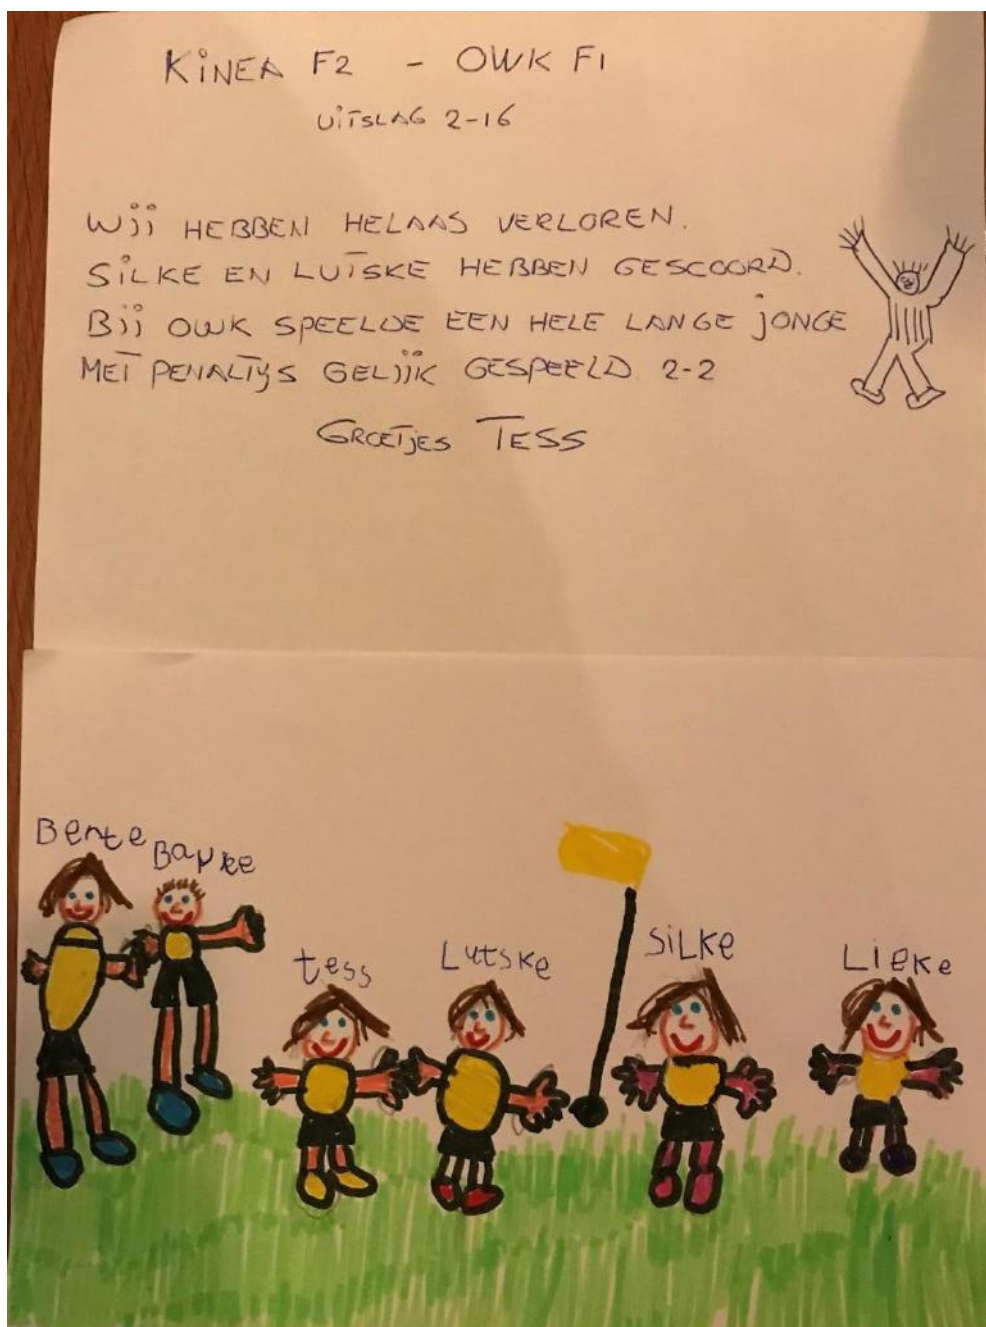 KiNEA F2 - OWK F1
UiTSLAG 2-16
Wij HEBBEN HELAAS VERLOREN.
SiLKE EN LUTSKE HEBBEN GESCOORD.
Bij OWK SPEELDE EEN HELE LANGE jONGE
MET PENALTYS GELijK GESPEELD 2-2
GROETjES TESS
Bente Bauke
tess Lutske SiLKe Lieke